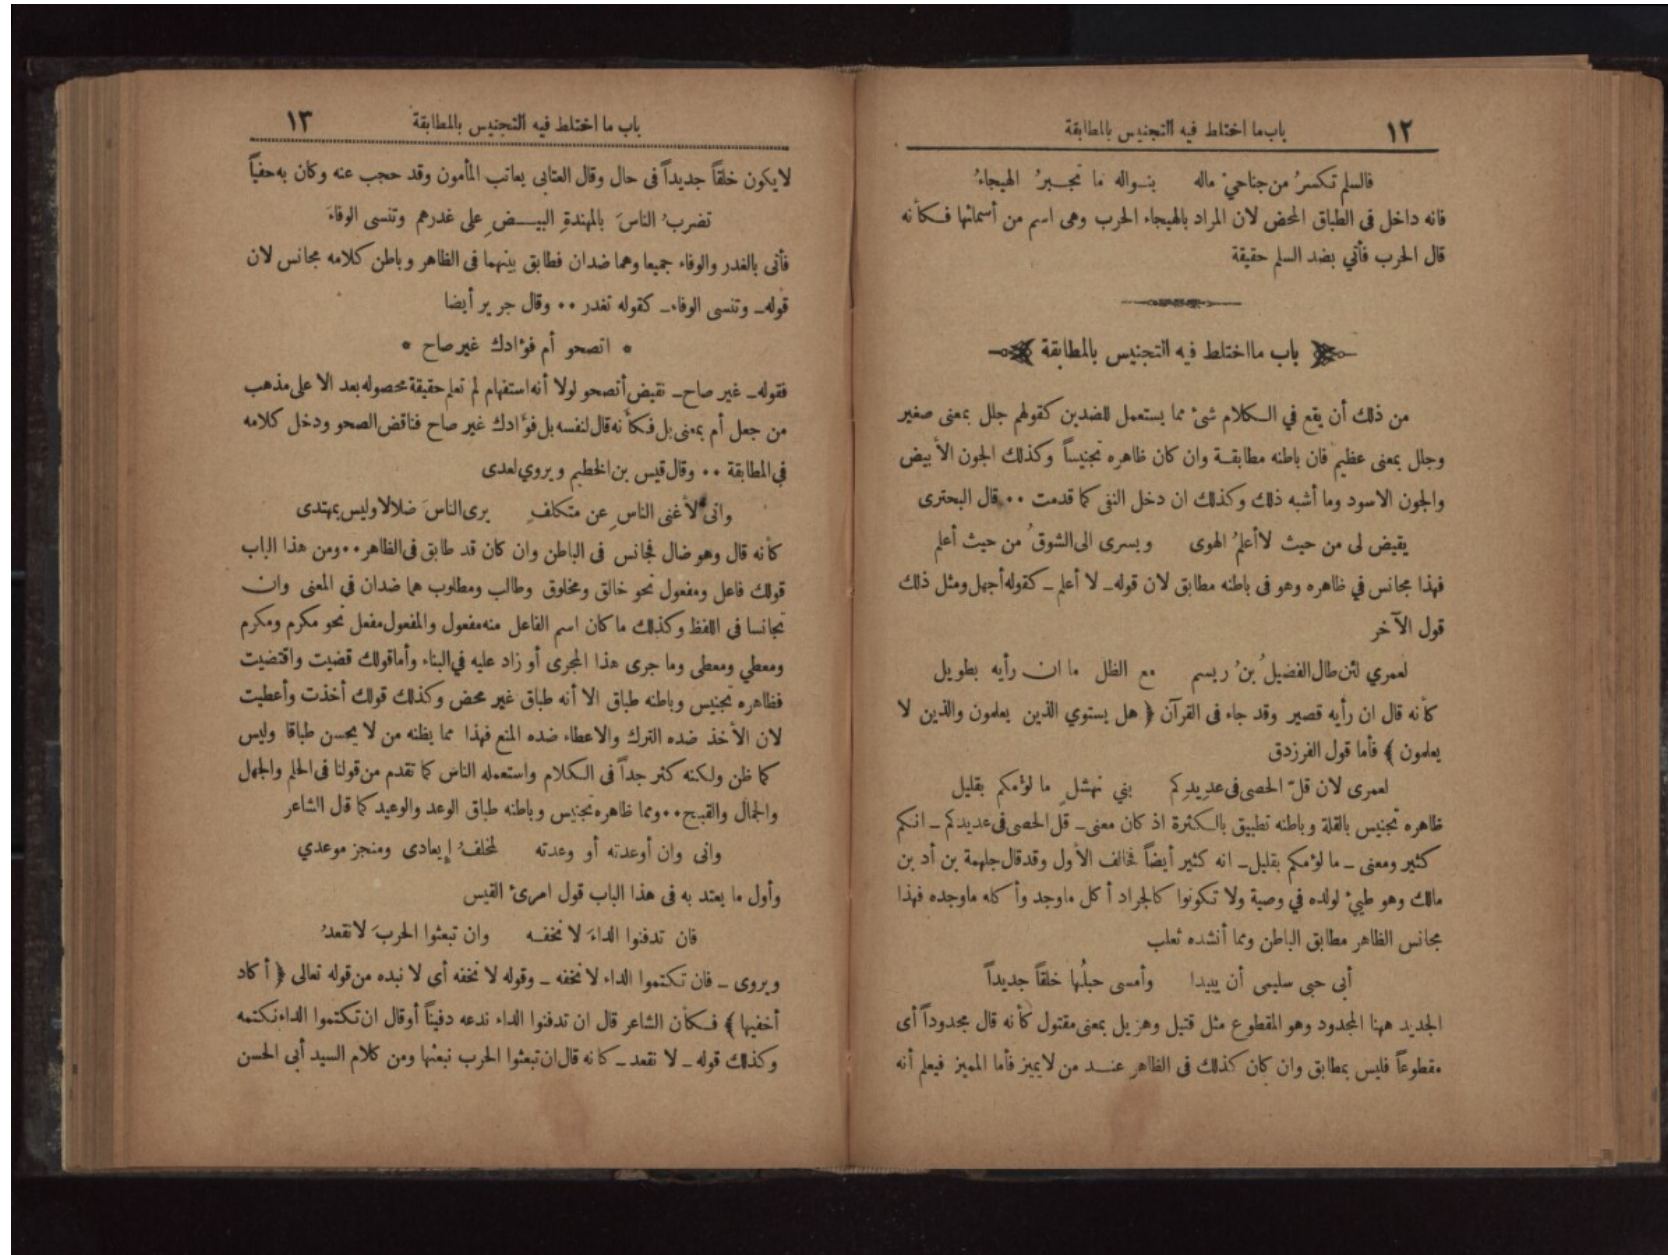 ١٢
باب ما اختلط فيه التجنيس بالمطابقة
فالسلم تكسرُ من جناحيْ ماله بنواله ما تجبرُ الهيجاءُ
فانه داخل فى الطباق المحض لان المراد بالهيجاء الحرب وهى اسم من أسمائها فكأنه
قال الحرب فأتي بضد السلم حقيقة
باب ما اختلط فيه التجنيس بالمطابقة
من ذلك أن يقع في الكلام شئ مما يستعمل للضدين كقولهم جلل بمعنى صغير
وجلل بمعنى عظيم فان باطنه مطابقة وان كان ظاهره تجنيساً وكذلك الجون الأبيض
والجون الاسود وما أشبه ذلك وكذلك ان دخل النفى كما قدمت ٠٠ قال البحترى
يقيض لى من حيث لا أعلمُ الهوى ويسرى الى الشوقُ من حيث أعلم
فهذا مجانس في ظاهره وهو فى باطنه مطابق لان قوله ـ لا أعلم ـ كقوله أجهل ومثل ذلك
قول الآخر
لعمري لئن طال الفضيلُ بنُ ريسم مع الظل ما ان رأيه بطويل
كأنه قال ان رأيه قصير وقد جاء فى القرآن ﴿ هل يستوي الذين يعلمون والذين لا
يعلمون ﴾ فأما قول الفرزدق
لعمرى لان قلّ الحصى فى عديدِكم بني نهشلٍ ما لؤمكم بقليل
ظاهره تجنيس بالقلة وباطنه تطبيق بالكثرة اذ كان معنى ـ قل الحصى فى عديدكم ـ انكم
كثير ومعنى ـ ما لؤمكم بقليل ـ انه كثير أيضاً فخالف الأول وقد قال جلهمة بن أد بن
مالك وهو طيئ لولده في وصية ولا تكونوا كالجراد أكل ماوجد وأكله ماوجده فهذا
مجانس الظاهر مطابق الباطن ومما أنشده ثعلب
أبى حبى سليمى أن يبيدا وأمسى حبلُها خلقاً جديداً
الجديد ههنا المجدود وهو المقطوع مثل قتيل وهزيل بمعنى مقتول كأنه قال مجدوداً أى
مقطوعاً فليس بمطابق وان كان كذلك فى الظاهر عند من لايميز فأما المميز فيعلم أنه
باب ما اختلط فيه التجنيس بالمطابقة
١٣
لايكون خلقاً جديداً فى حال وقال العتابى يعاتب المأمون وقد حجب عنه وكان به حفياً
تضربُ الناسَ بالمهندةِ البيـضِ على غدرهم وتنسى الوفاءَ
فأتى بالغدر والوفاء جميعا وهما ضدان فطابق بينهما فى الظاهر وباطن كلامه مجانس لان
قوله ـ وتنسى الوفاء ـ كقوله تغدر ٠٠ وقال جرير أيضا
* اتصحو أم فؤادك غير صاح *
فقوله ـ غير صاح ـ نقيض أتصحو لولا أنه استفهام لم تعلم حقيقة محصوله بعد الا على مذهب
من جعل أم بمعنى بل فكأنه قال لنفسه بل فؤادك غير صاح فناقض الصحو ودخل كلامه
في المطابقة ٠٠ وقال قيس بن الخطيم ويروي لعدى
وانى لأغنى الناسِ عن متكلفٍ يرى الناسَ ضلالا وليس بمهتدى
كأنه قال وهو ضال فجانس فى الباطن وان كان قد طابق فى الظاهر ٠٠ ومن هذا الباب
قولك فاعل ومفعول نحو خالق ومخلوق وطالب ومطلوب هما ضدان في المعنى وان
تجانسا فى اللفظ وكذلك ما كان اسم الفاعل منه مفعول والمفعول مفعل نحو مكرم ومكرم
ومعطي ومعطى وما جرى هذا المجرى أو زاد عليه في البناء وأما قولك قضيت واقتضيت
فظاهره تجنيس وباطنه طباق الا أنه طباق غير محض وكذلك قولك أخذت وأعطيت
لان الأخذ ضده الترك والاعطاء ضده المنع فهذا مما يظنه من لا يحسن طباقا وليس
كما ظن ولكنه كثر جداً فى الكلام واستعمله الناس كما تقدم من قولنا فى الحلم والجهل
والجمال والقبيح ٠٠ ومما ظاهره تجنيس وباطنه طباق الوعد والوعيد كما قال الشاعر
وانى وان أوعدته أو وعدته لمخلفُ إيعادى ومنجز موعدي
وأول ما يعتد به فى هذا الباب قول امرئ القيس
فان تدفنوا الداءَ لا نخفه وان تبعثوا الحربَ لا نقعدُ
ويروى ـ فان تكتموا الداء لا نخفه ـ وقوله لا نخفه أي لا نبده من قوله تعالى ﴿ أكاد
أخفيها ﴾ فكأن الشاعر قال ان تدفنوا الداء ندعه دفيناً أو قال ان تكتموا الداء نكتمه
وكذلك قوله ـ لا نقعد ـ كانه قال ان تبعثوا الحرب نبعثها ومن كلام السيد أبى الحسن